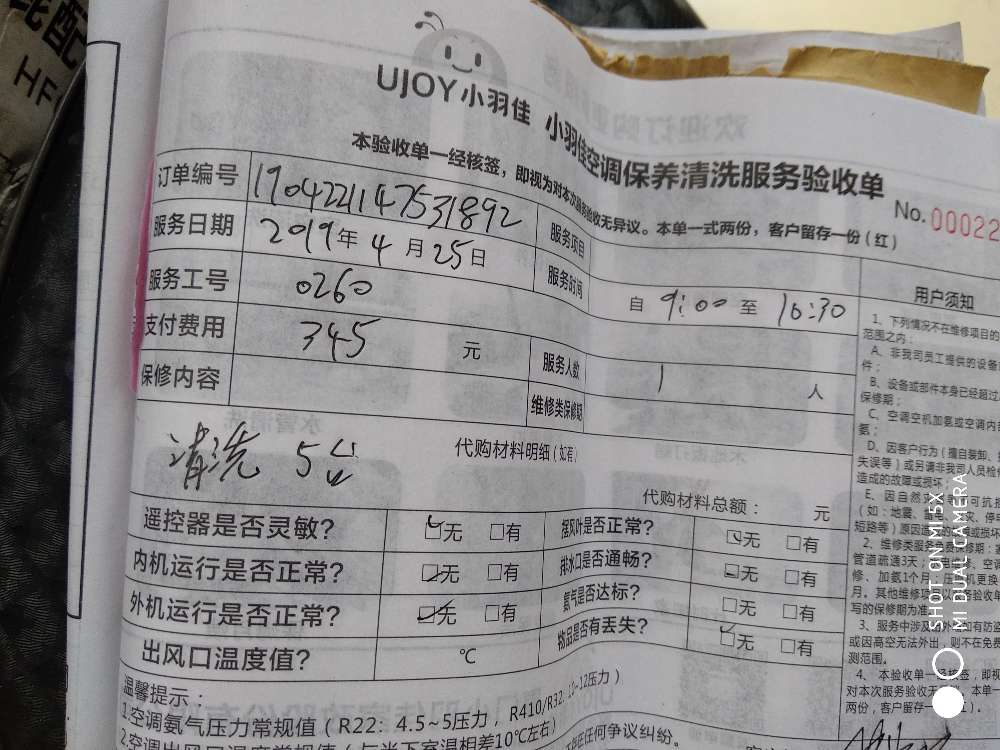 UJOY小羽佳 小羽佳空调保养清洗服务验收单
本验收单一经核签，即视为对本次服务验收无异议。本单一式两份，客户留存一份（红）
No.00022
订单编号 1904221147531892 服务项目
服务日期 2019年4月25日 服务时间 自 9:00 至 10:30
服务工号 0260
支付费用 345 元 服务人数 1 人
保修内容 维修类保修期
清洗 5台
代购材料明细（如有）
代购材料总额： 元
遥控器是否灵敏? 无 □有 摆风叶是否正常? 无 □有
内机运行是否正常? 无 □有 排水口是否通畅? 无 □有
外机运行是否正常? 无 □有 氨气是否达标? □无 □有
出风口温度值? ℃ 物品是否有丢失? 无 □有
温馨提示：
1.空调氨气压力常规值（R22：4.5~5压力，R410/R32:10~12压力）
2.空调出风口温度常规值（与当下室温相差10℃左右）
存在任何争议纠纷。
用户须知
1、下列情况不在维修项目的
范围之内：
A、非我司员工提供的设备
件；
B、设备或部件本身已经超过
保修期；
C、空调空机加氨或空调内
氨；
D、因客户行为（擅自装卸、
失误等）或另请非我司人员检
造成的故障或损坏；
E、因自然 可抗
（如：地震、 灾、停
短路等）原因造 或损
2、维修类服务 保修期：
管道疏通3天； 修、空
修、加氨1个月 压 机更换
月。其他维修项 以 务验收
写的保修期为准
3、服务中涉及 外 如有防盗
或因高空无法外出，则不在免费
测范围。
4、本验收单一经核签，即视
对本次服务验收无 。本单一
两份，客户留存一 （红）。
SHOT ON MI 5X
MI DUAL CAMERA